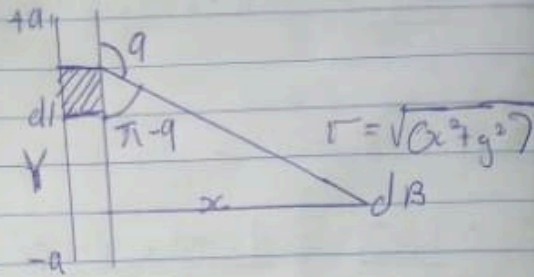 +a
q
dl
π-q
r = √(x²+y²)
Y
x
dB
-a